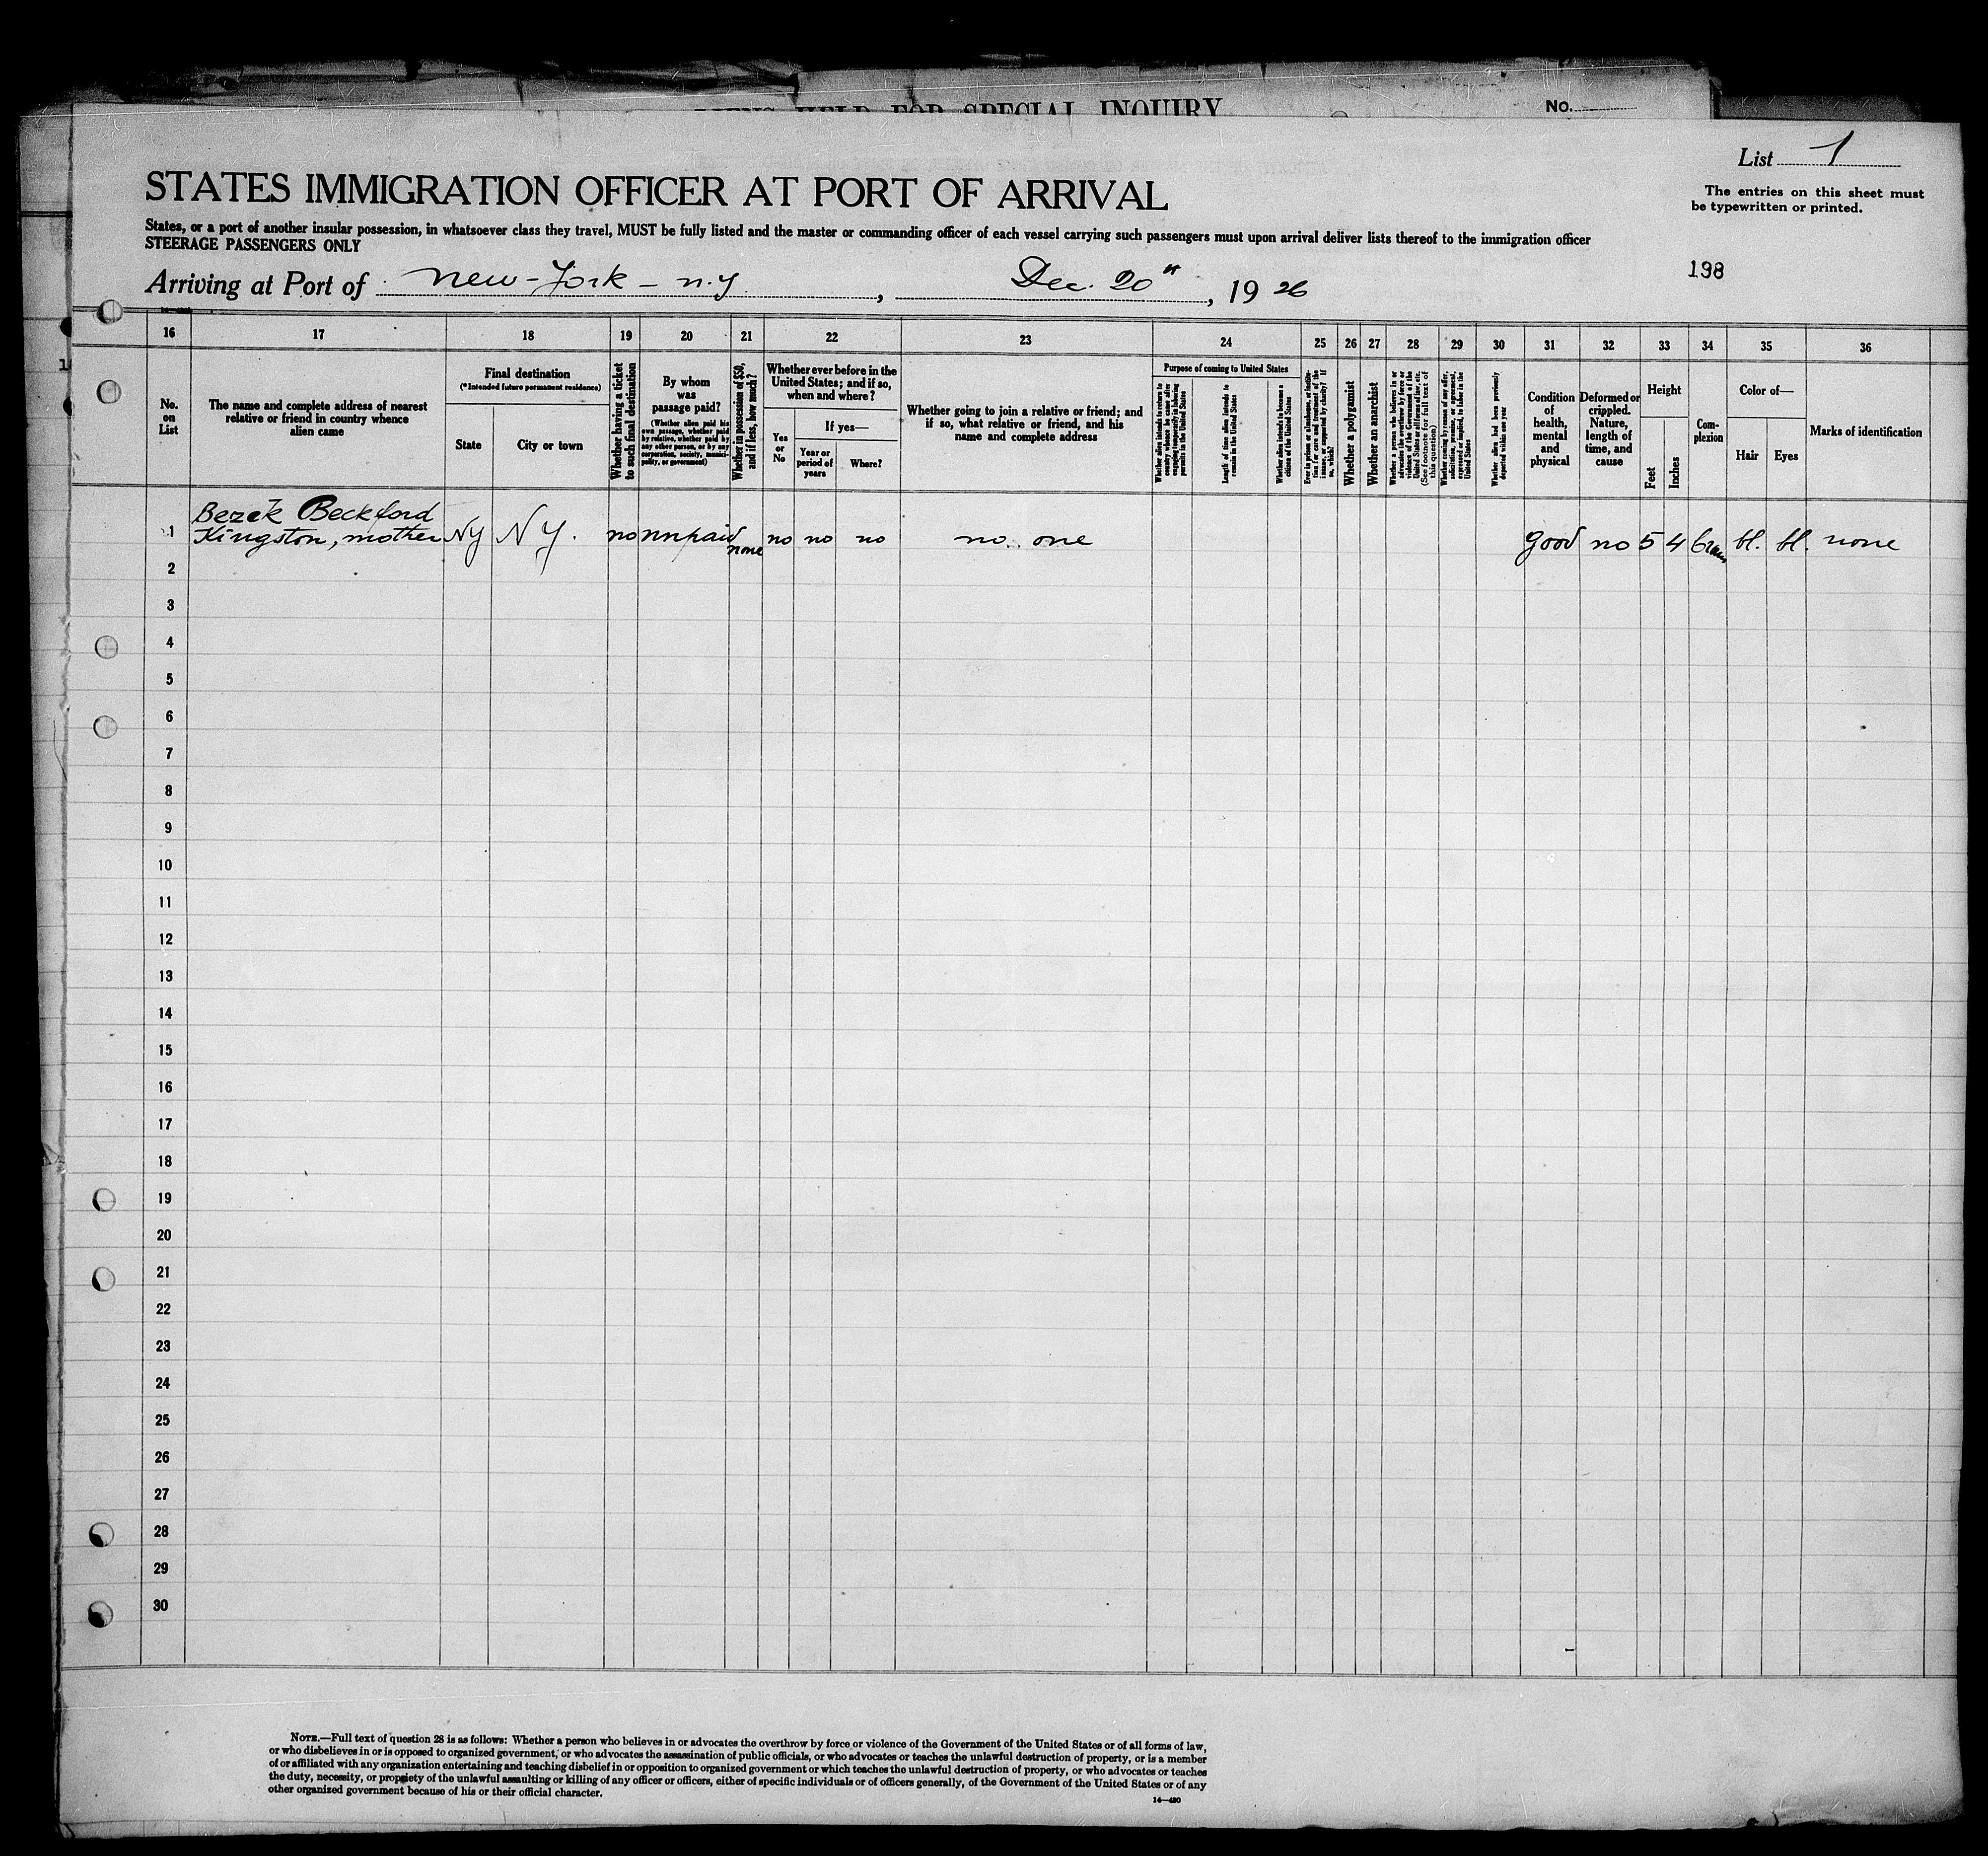 ALIENS HELD FOR SPECIAL INQUIRY
No.
List 1
The entries on this sheet must
be typewritten or printed.
STATES IMMIGRATION OFFICER AT PORT OF ARRIVAL
States, or a port of another insular possession, in whatsoever class they travel, MUST be fully listed and the master or commanding officer of each vessel carrying such passengers must upon arrival deliver lists thereof to the immigration officer
STEERAGE PASSENGERS ONLY
198
Arriving at Port of New-York - n.y. , Dec. 20th , 19 26
16 17 18 19 20 21 22 23 24 25 26 27 28 29 30 31 32 33 34 35 36
No.
on
List
The name and complete address of nearest
relative or friend in country whence
alien came
Final destination
(*Intended future permanent residence)
State
City or town
Whether having a ticket
to such final destination
By whom
was
passage paid?
(Whether alien paid his
own passage, whether paid
by relative, whether paid by
any other person, or by any
corporation, society, munici-
pality, or government)
Whether in possession of $50,
and if less, how much?
Whether ever before in the
United States; and if so,
when and where?
Yes
or
No
If yes—
Year or
period of
years
Where?
Whether going to join a relative or friend; and
if so, what relative or friend, and his
name and complete address
Purpose of coming to United States
Whether alien intends to return to
country whence he came after
engaging temporarily in laboring
pursuits in the United States
Length of time alien intends to
remain in the United States
Whether alien intends to become a
citizen of the United States
Ever in prison or almshouse, or institu-
tion for care and treatment of the
insane, or supported by charity? If
so, which?
Whether a polygamist
Whether an anarchist
Whether a person who believes in or
advocates the overthrow by force or
violence of the Government of the
United States or all forms of law, etc.
(See footnote for full text of
this question)
Whether coming by reason of any offer,
solicitation, promise, or agreement,
expressed or implied, to labor in the
United States
Whether alien had been previously
deported within one year
Condition
of
health,
mental
and
physical
Deformed or
crippled.
Nature,
length of
time, and
cause
Height
Feet
Inches
Com-
plexion
Color of—
Hair
Eyes
Marks of identification
Bezek Beckford
1 Kingston, mother NY N Y. no unpaid none no no no no one good no 5 4 brown bl. bl. none
2
3
4
5
6
7
8
9
10
11
12
13
14
15
16
17
18
19
20
21
22
23
24
25
26
27
28
29
30
NOTE.—Full text of question 28 is as follows: Whether a person who believes in or advocates the overthrow by force or violence of the Government of the United States or of all forms of law,
or who disbelieves in or is opposed to organized government, or who advocates the assassination of public officials, or who advocates or teaches the unlawful destruction of property, or is a member
of or affiliated with any organization entertaining and teaching disbelief in or opposition to organized government or which teaches the unlawful destruction of property, or who advocates or teaches
the duty, necessity, or propriety of the unlawful assaulting or killing of any officer or officers, either of specific individuals or of officers generally, of the Government of the United States or of any
other organized government because of his or their official character.
14—430